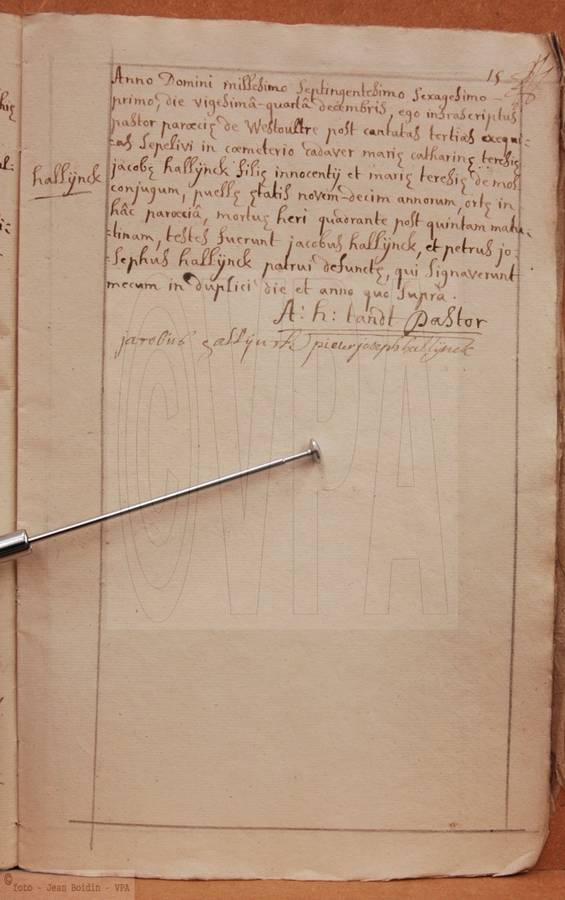 15
Anno Domini millesimo septingentesimo sexagesimo
primo, die vigesimâ-quartâ decembris, ego infrascriptus
pastor parœcię de Westoultre post cantatas tertias exequi=
=as sepelivi in cœmeterio cadaver marię catharinę teresię
hallÿnck
jacobę hallÿnck filię innocentÿ et marię teresię de mol
conjugum, puellę ętatis novem-decim annorum, ortę in
hâc parœciâ, mortuę heri quadrante post quintam matu=
=tinam, testes fuerunt jacobus hallÿnck, et petrus jo=
=sephus hallÿnck patrui defunctę, qui signaverunt
mecum in duplici die et anno quo supra.
A: h: tandt Pastor
jacobus hallijnck pieter joseph hallijnck
©VPA
© foto - Jean Boidin - VPA